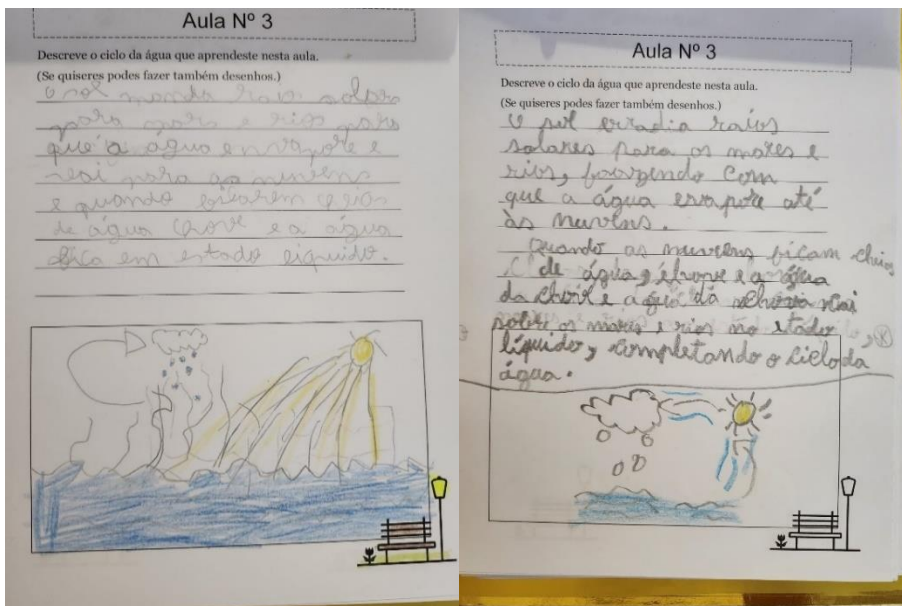 Aula Nº 3
Descreve o ciclo da água que aprendeste nesta aula.
(Se quiseres podes fazer também desenhos.)
O sol manda raios solares
para mares e rios para
que a água envapore e
vai para as nuvens
e quando ficarem cheias
de água chove e a água
fica em estado liquido.
Aula Nº 3
Descreve o ciclo da água que aprendeste nesta aula.
(Se quiseres podes fazer também desenhos.)
O sol erradia raios
solares para os mares e
rios, fazendo com
que a água evapore até
às nuvens.
Quando as nuvens ficam cheias
de água, chove e a água
da chuva e a água da chuva cai
sobre os mares e rios no etado
líquido, completando o ciclo da
água.